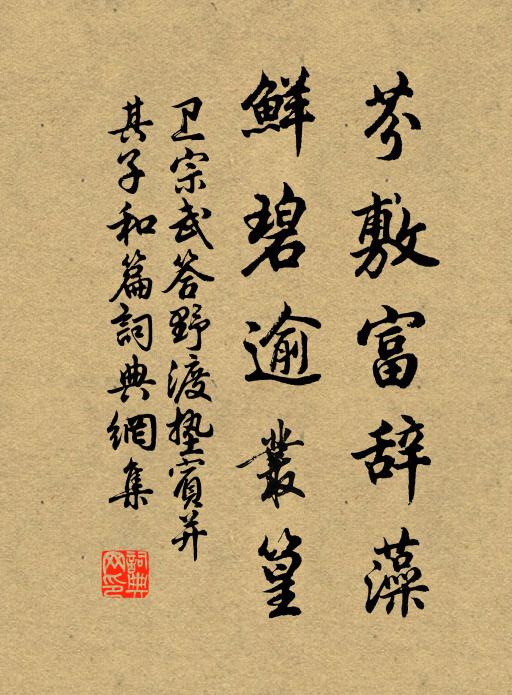 芬敷富辞藻
鲜碧逾丛篁
卫宗武答野渡垫宾并
其子和篇词典網集
詞典网印